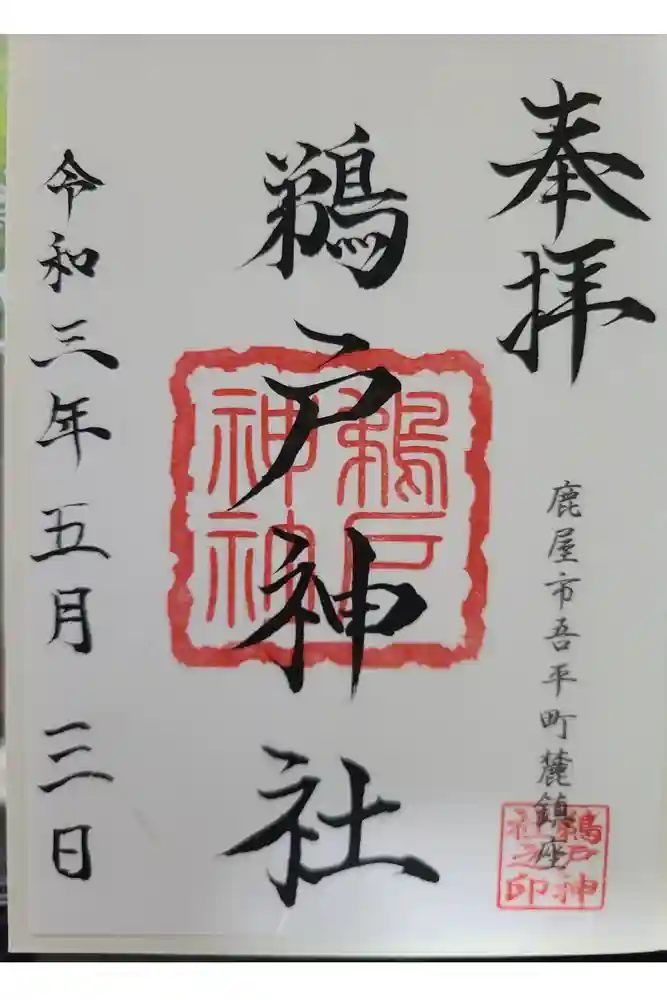 奉拝
鹿屋市吾平町麓鎮座
鵜戸神社
令和三年五月三日
鵜戸神社之印